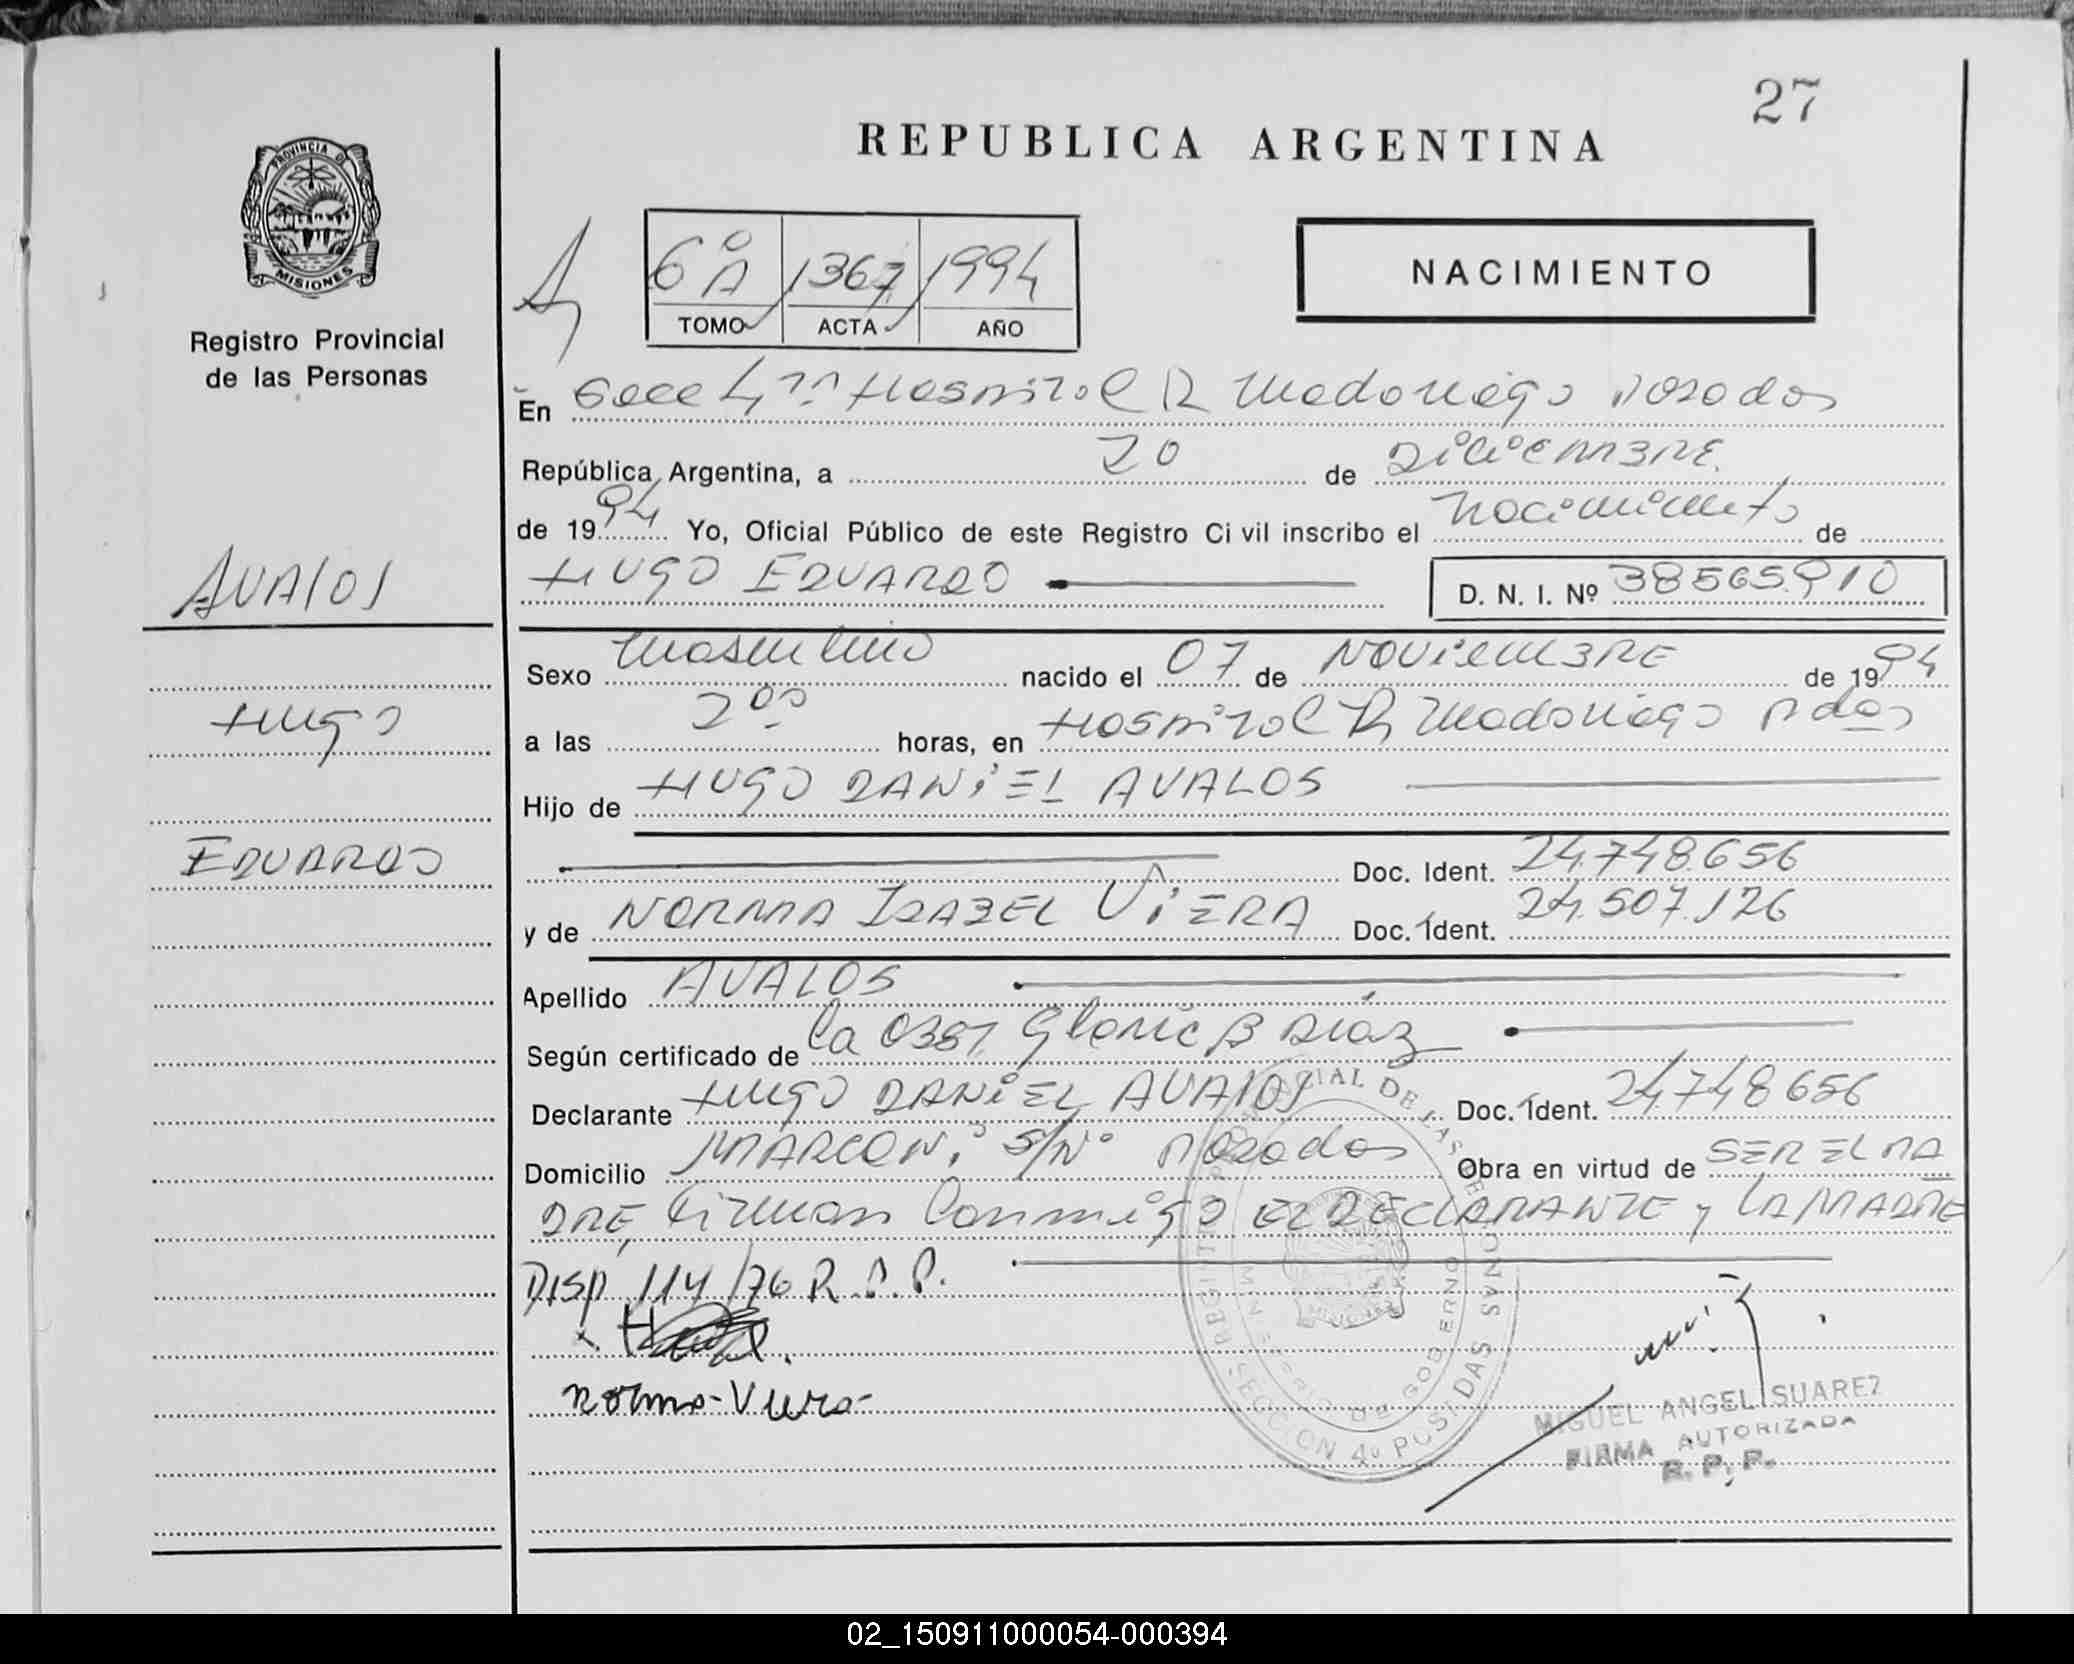 27
REPUBLICA ARGENTINA
PROVINCIA DE
MISIONES
Registro Provincial
de las Personas
6º A 1367 1994
TOMO ACTA AÑO
NACIMIENTO
En Secc 4ª Hospital R Madariaga Posadas
República Argentina, a 20 de DICIEMBRE
de 1994 Yo, Oficial Público de este Registro Civil inscribo el Nacimiento de
HUGO EDUARDO D. N. I. Nº 38565.910
AVALOS
Hugo
EDUARDO
Sexo Masculino nacido el 07 de NOVIEMBRE de 1994
a las 2⁰⁰ horas, en Hospital R Madariaga Pdas
Hijo de HUGO DANIEL AVALOS
Doc. Ident. 24.748.656
y de NORMA ISABEL VIERA Doc. Ident. 24.507.126
Apellido AVALOS
Según certificado de la Obst Gloria B Diaz
Declarante HUGO DANIEL AVALOS Doc. Ident. 24.748656
Domicilio MARCONI S/Nº Posadas Obra en virtud de SER EL PA
DRE, Firman Conmigo EL DECLARANTE y LA MADRE
DISP. 114/76 R.P.P.
Norma-Viera
REGISTRO PROVINCIAL DE LAS PERSONAS
MINISTERIO DE GOBIERNO
SECCION 4º POSADAS
MIGUEL ANGEL SUAREZ
FIRMA AUTORIZADA
R. P. P.
02_150911000054-000394